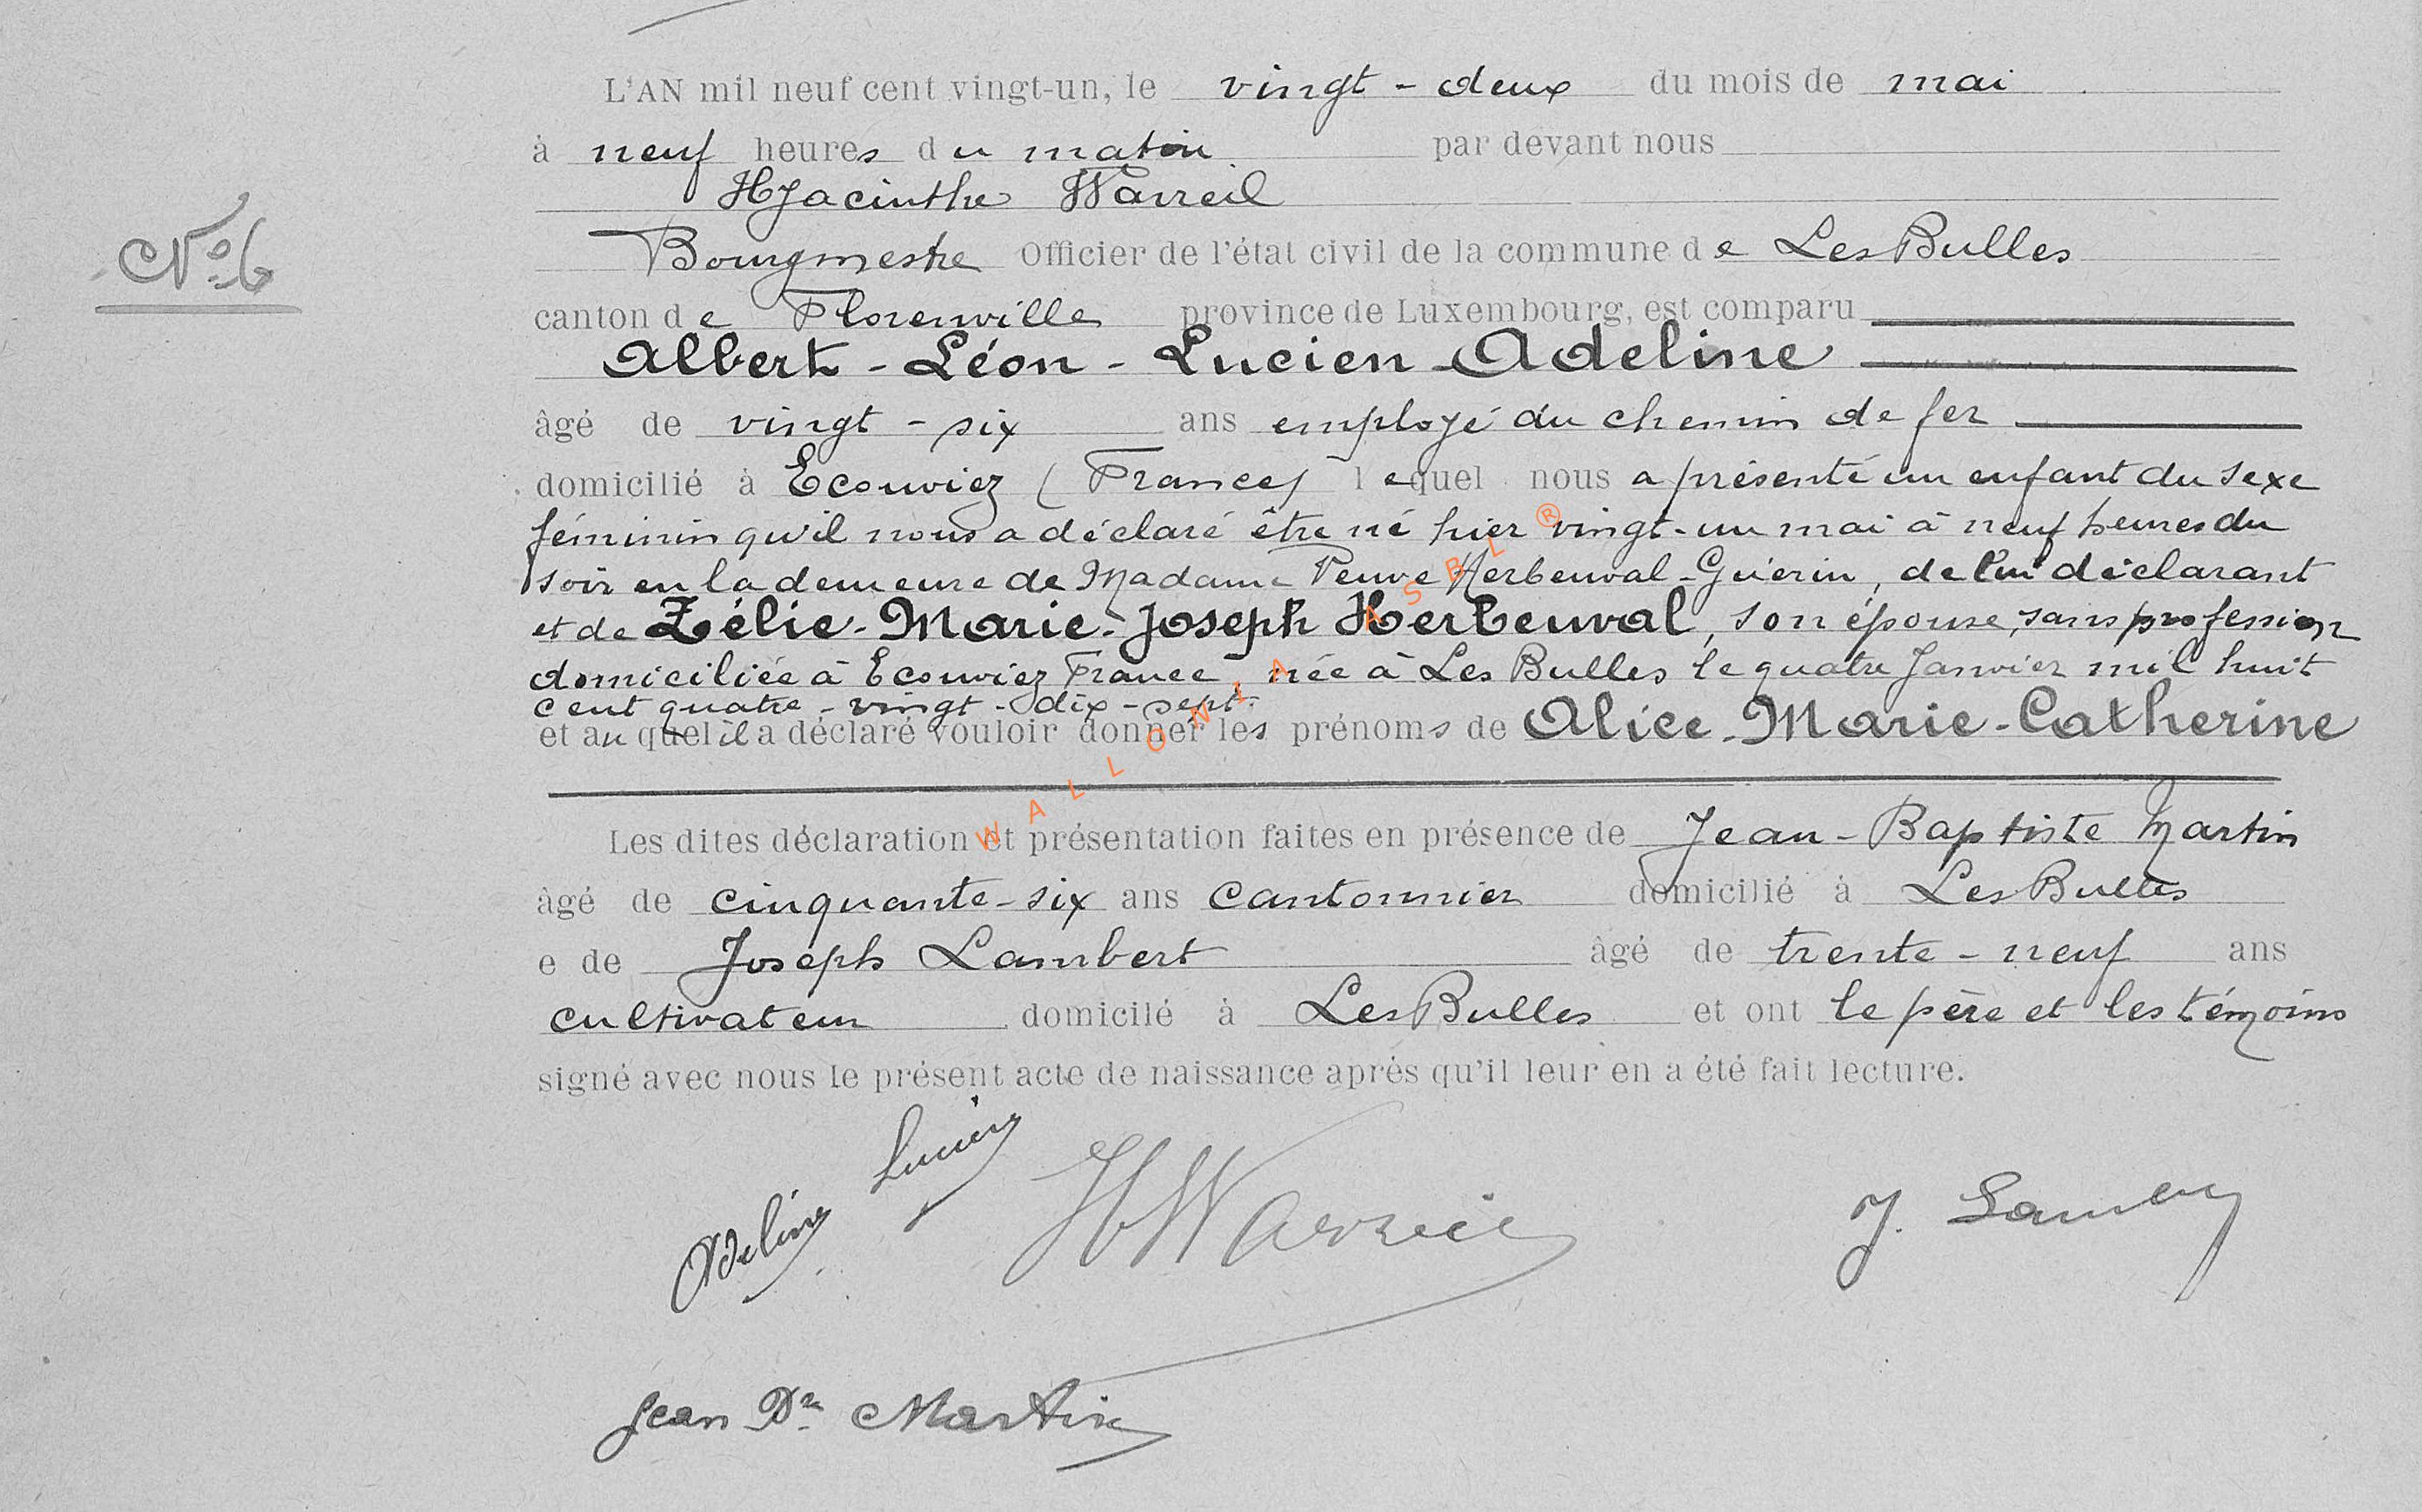 L'AN mil neuf cent vingt-un, le vingt-deux du mois de mai
à neuf heures du matin par devant nous
Hyacinthe Warreil
N° 6
Bourgmestre Officier de l'état civil de la commune de Les Bulles
canton de Florenville province de Luxembourg, est comparu
Albert-Léon-Lucien Adeline
âgé de vingt-six ans employé du chemin de fer
domicilié à Ecouviez (France) lequel nous a présenté un enfant du sexe
féminin qu'il nous a déclaré être né hier vingt-un mai à neuf heures du
soir en la demeure de Madame Veuve Herbeuval-Guérin, de lui déclarant
et de Zélie-Marie-Joseph Herbeuval, son épouse, sans profession
domiciliée à Ecouviez France, née à Les Bulles le quatre Janvier mil huit
cent quatre-vingt-dix-sept.
et auquel il a déclaré vouloir donner les prénoms de Alice-Marie-Catherine
WALLONIA ASBL ®
Les dites déclaration et présentation faites en présence de Jean-Baptiste Martin
âgé de cinquante-six ans cantonnier domicilié à Les Bulles
e de Joseph Lambert âgé de trente-neuf ans
cultivateur domicilé à Les Bulles et ont le père et les témoins
signé avec nous le présent acte de naissance après qu'il leur en a été fait lecture.
Adeline Lucien
H Warreil
J. Lambert
Jean Martin